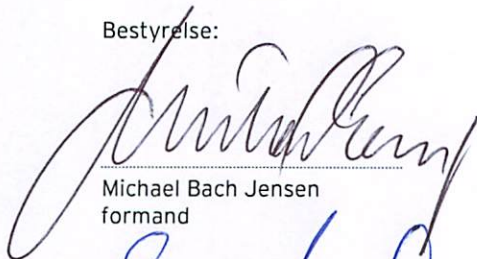 Bestyrelse:
Michael Bach Jensen
formand